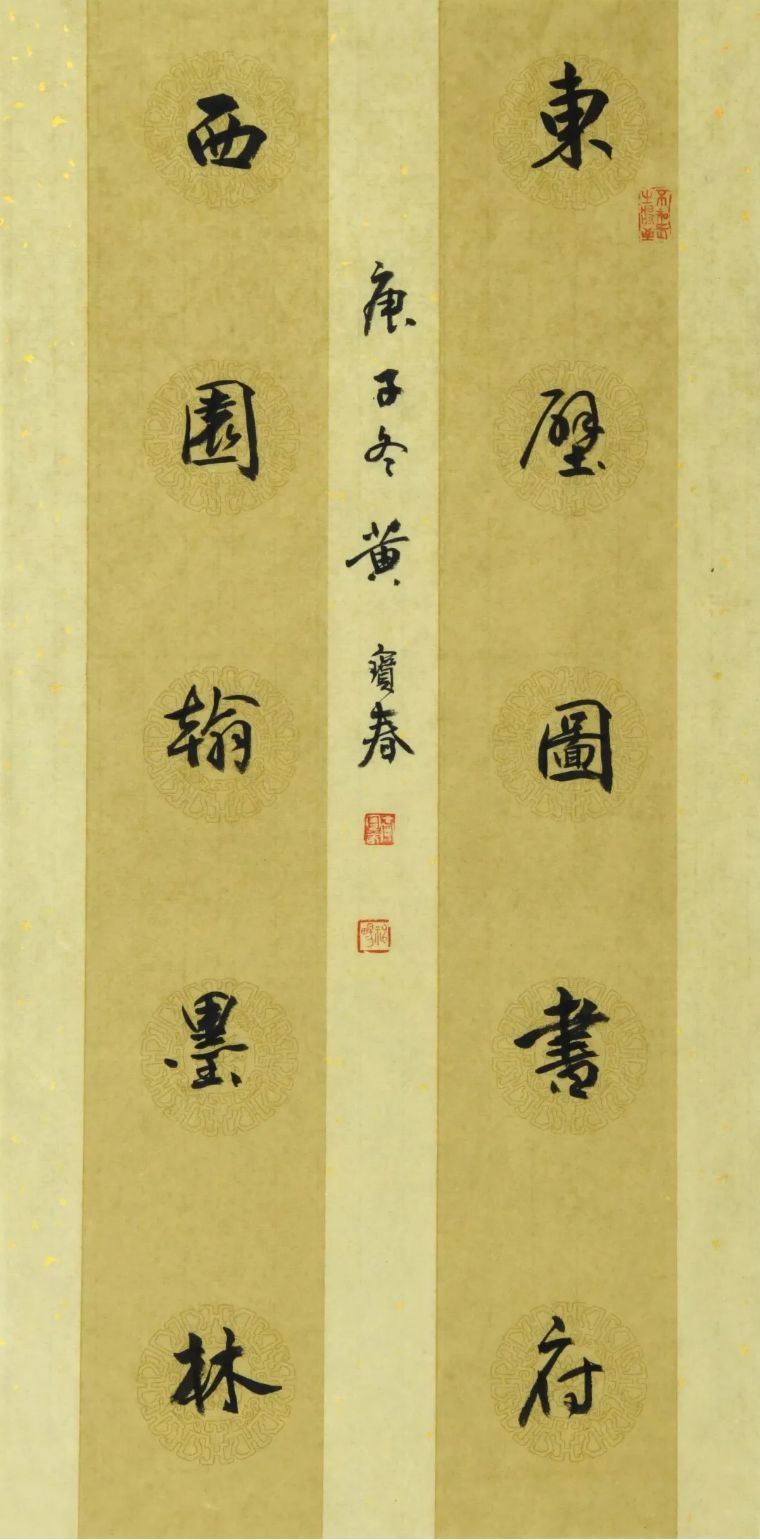 東壁圖書府
西園翰墨林
庚子冬黄寶春